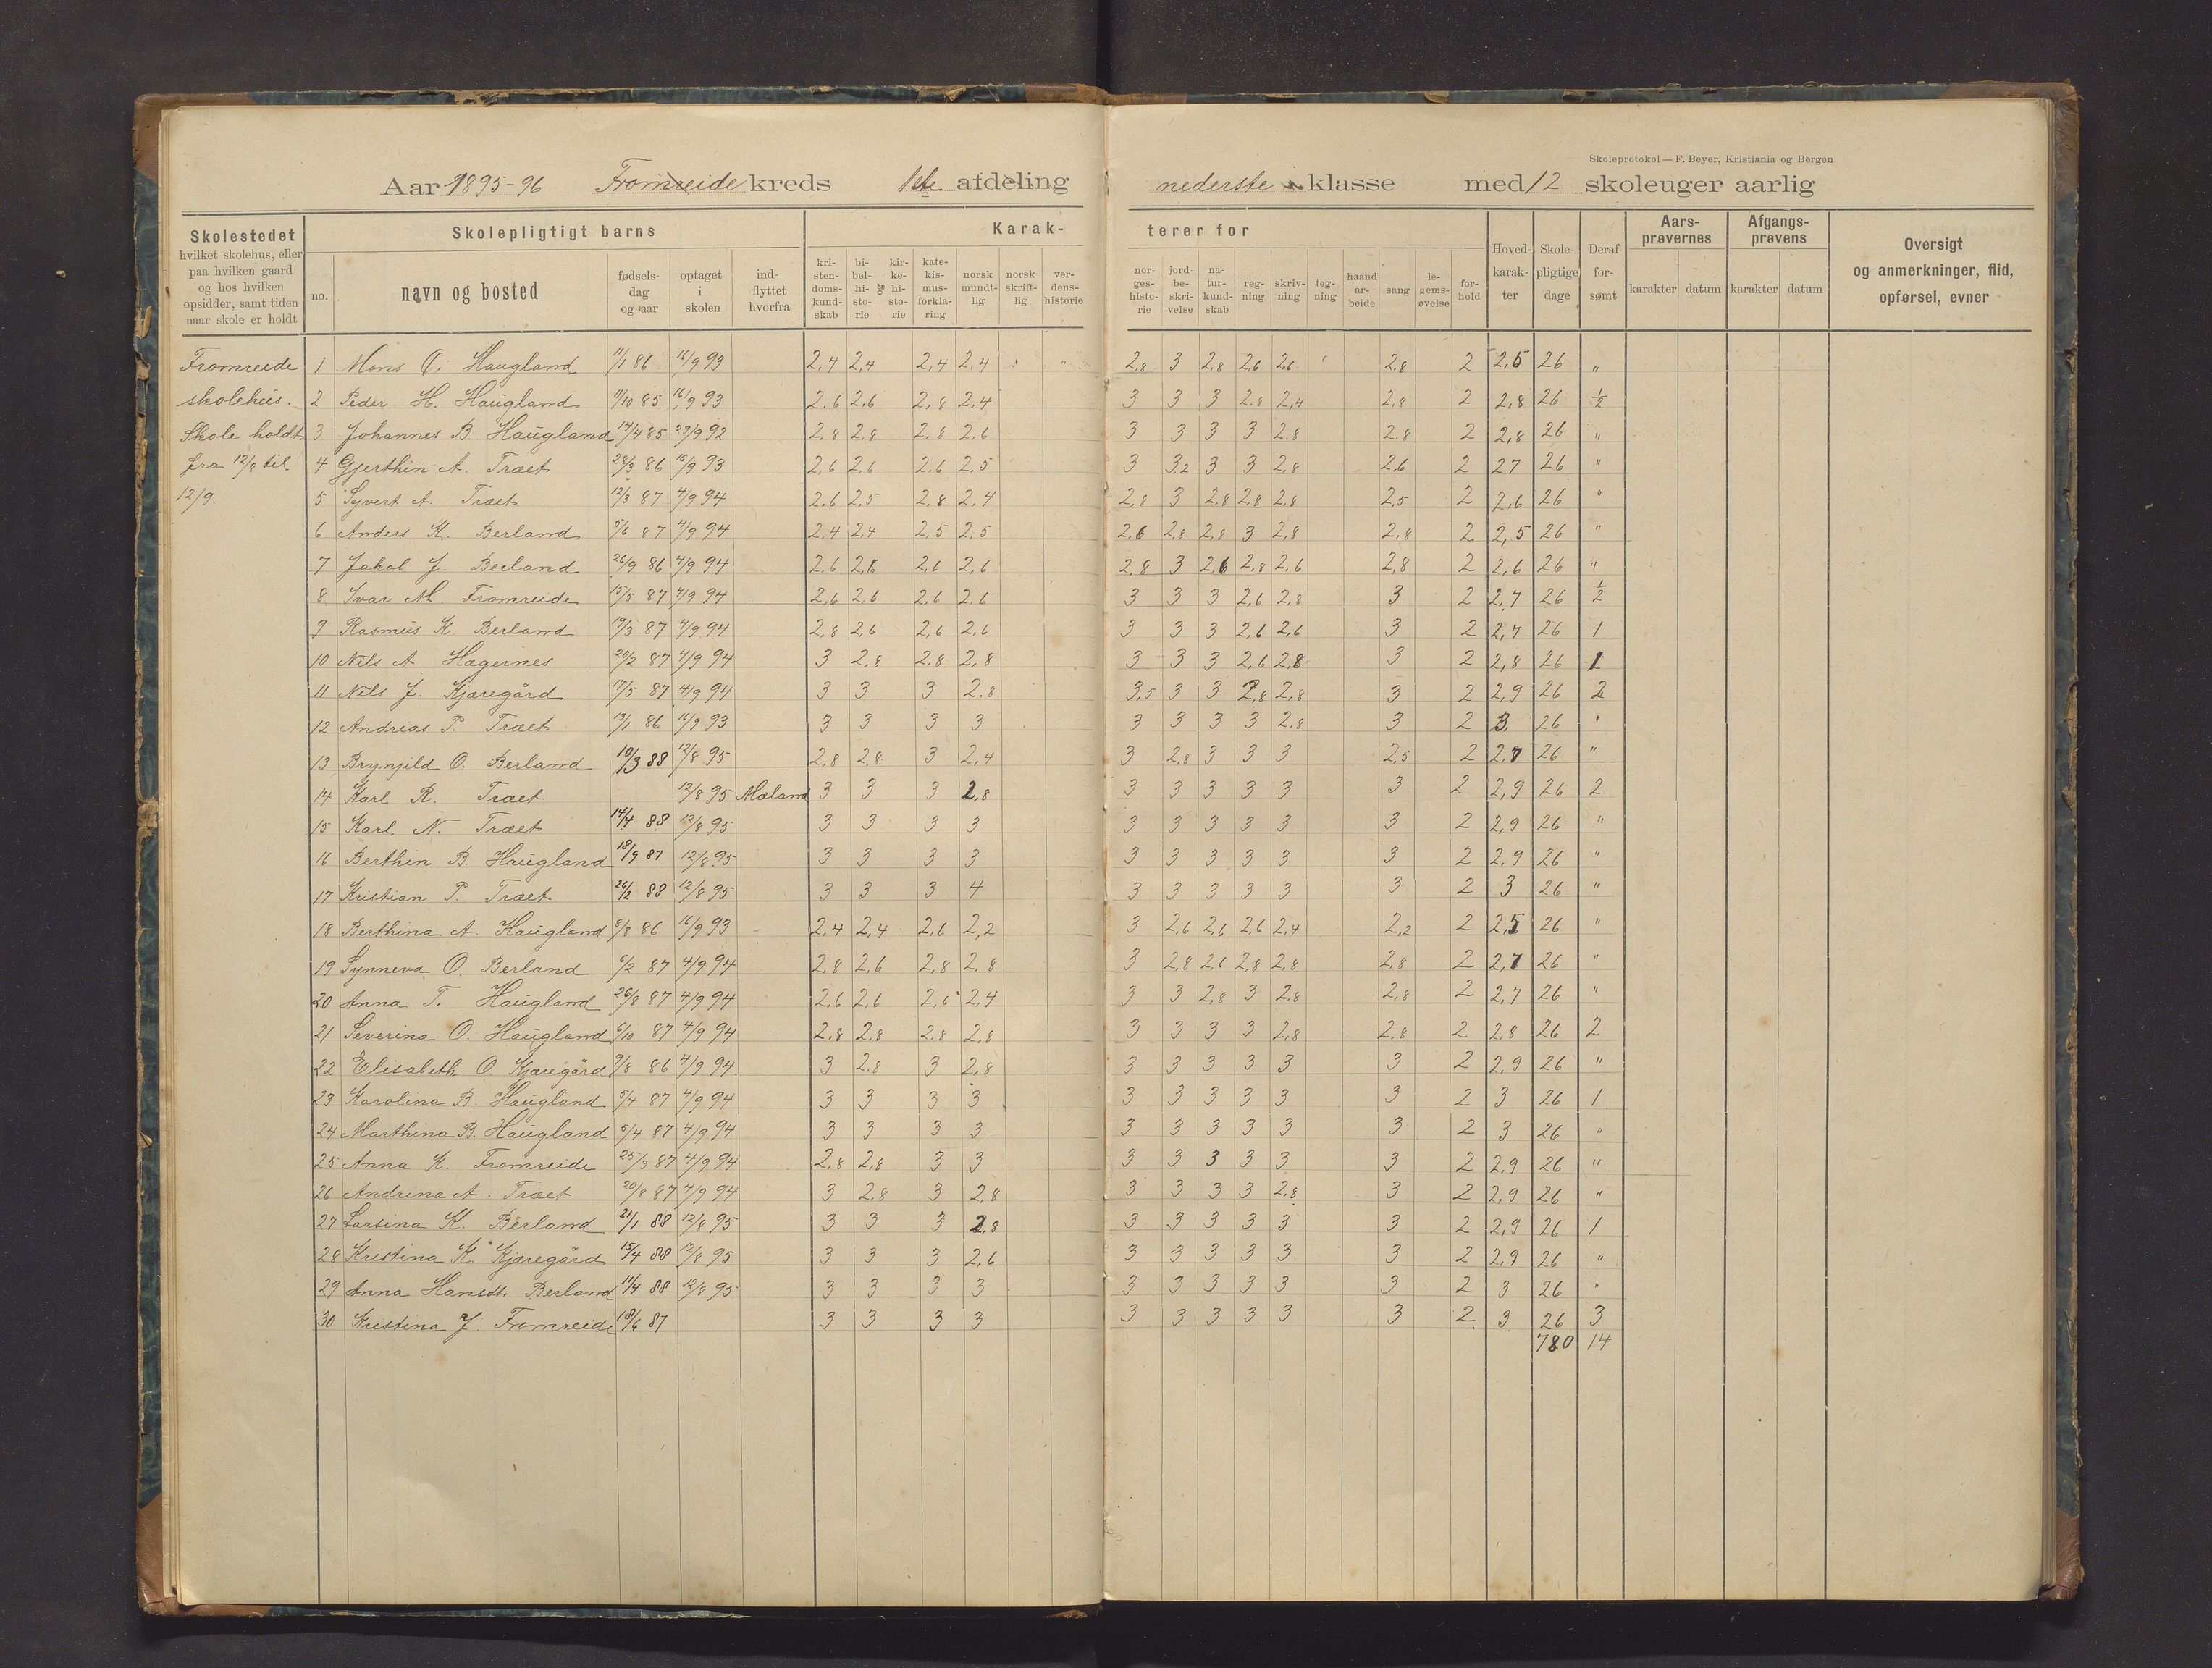 Skoleprotokol — F. Beyer, Kristiania og Bergen
Aar 1895-96 Fromreide kreds 1ste afdeling nederste klasse med 12 skoleuger aarlig
Skolestedet hvilket skolehus, eller paa hvilken gaard og hos hvilken opsidder, samt tiden naar skole er holdt
Skolepligtigt barns
no. navn og bosted fødselsdag og aar optaget i skolen indflyttet hvorfra
Karakterer for
kristendomskundskab bibelhistorie og kirkehistorie katekismusforklaring norsk mundtlig norsk skriftlig verdenshistorie norgeshistorie jordbeskrivelse naturkundskab regning skrivning tegning haandarbeide sang legemsøvelse forhold
Hovedkarakter Skolepligtige dage Deraf forsømt
Aarsprøvernes karakter datum Afgangsprøvens karakter datum
Oversigt og anmerkninger, flid, opførsel, evner
Fromreide 1 Mons O. Haugland 11/1 86 16/9 93 2.4 2,4 2,4 2,4 2.8 3 2,8 2,6 2,6 2.8 2 2,5 26 "
skolehus. 2 Peder H. Haugland 11/10 85 16/9 93 2.6 2,6 2,8 2,4 3 3 3 2.8 2,4 2,8 2 2,8 26 1/2
Skole holdt 3 Johannes B. Haugland 14/4 85 29/9 92 2.8 2.8 2.8 2.6 3 3 3 3 2.8 2.8 2 2,8 26 "
fra 12/8 til 4 Gjerthin A. Træet 28/3 86 16/9 93 2,6 2,6 2.6 2.5 3 3,2 3 3 2.8 2,6 2 27 26 "
12/9. 5 Syvert A. Træet 12/3 87 4/9 94 2.6 2.5 2.8 2.4 2,8 3 2,8 2,8 2,8 2,5 2 2,6 26 "
6 Anders K. Berland 5/6 87 4/9 94 2.4 2.4 2.5 2.5 2.6 2,8 2,8 3 2,8 2.8 2 2,5 26 "
7 Jakob J. Berland 26/9 86 4/9 94 2.6 2,6 2,6 2,6 2.8 3 2,6 2,8 2,6 2,8 2 2,6 26 "
8 Ivar M. Fromreide 15/5 87 4/9 94 2,6 2,6 2,6 2.6 3 3 3 2,6 2,8 3 2 2,7 26 1/2
9 Rasmus K. Berland 19/3 87 4/9 94 2,8 2,6 2,6 2,6 3 3 3 2,6 2,6 3 2 2,7 26 1
10 Nils A Hægernes 20/2 87 4/9 94 3 2,8 2,8 2,8 3 3 3 2,6 2,8 3 2 2,8 26 1
11 Nils J. Kjæregård 17/5 87 4/9 94 3 3 3 2.8 3,5 3 3 2,8 2,8 3 2 2,9 26 2
12 Andreas P. Træet 19/1 86 16/9 93 3 3 3 3 3 3 3 3 2.8 3 2 3. 26 "
13 Brynjeld O. Berland 10/3 88 12/8 95 2,8 2,8 3 2,4 3 2,8 3 3 3 2,5 2 2,7 26 "
14 Karl R. Træet 12/8 95 Mæland 3 3 3 2,8 3 3 3 3 3 3 2 2,9 26 2
15 Karl N. Træet 14/4 88 12/8 95 3 3 3 3 3 3 3 3 3 3 2 2,9 26 "
16 Berthin B. Haugland 18/9 87 12/8 95 3 3 3 3 3 3 3 3 3 3 2 2.9 26 "
17 Kristian P. Træet 26/2 88 12/8 95 3 3 3 4 3 3 3 3 3 3 2 3 26 "
18 Berthina A. Haugland 8/8 86 16/9 93 2.4 2,4 2,6 2,2 3 2,6 2,6 2,6 2,4 2,2 2 2,5 26 "
19 Synneva O. Berland 6/2 87 4/9 94 2,8 2,6 2,8 2,8 3 2,8 2,6 2,8 2,8 2,8 2 2,7 26 "
20 Anna T. Haugland 26/8 87 4/9 94 2,6 2,6 2,6 2,4 3 3 2,8 3 2,8 2,8 2 2,7 26 "
21 Severina O. Haugland 6/10 87 4/9 94 2,8 2.8 2.8 2,8 3 3 3 3 2,8 2.8 2 2,8 26 2
22 Elisabeth O. Kjæregård 9/8 86 4/9 94 3 2,8 3 2,8 3 3 3 3 3 3 2 2,9 26 "
23 Karolina B. Haugland 5/4 87 4/9 94 3 3 3 3 3 3 3 3 3 3 2 3 26 1
24 Marthina B. Haugland 5/4 87 4/9 94 3 3 3 3 3 3 3 3 3 3 2 3 26 "
25 Anna K. Fromreide 25/3 87 4/9 94 2,8 2,8 3 3 3 3 3 3 3 3 2 2,9 26 "
26 Andrina A. Træet 20/8 87 4/9 94 3 2.8 3 2,8 3 3 3 3 2,8 3 2 2,9 26 "
27 Larsina K. Berland 21/1 88 12/8 95 3 3 3 2,8 3 3 3 3 3 3 2 2,9 26 1
28 Kristina K. Kjæregård 15/4 88 12/8 95 3 3 3 2,6 3 3 3 3 3 3 2 2,9 26 "
29 Anna Hansdt Berland 11/4 88 12/8 95 3 3 3 3 3 3 3 3 3 3 2 3 26 "
30 Kristina J. Fromreide 18/6 87 3 3 3 3 3 3 3 3 3 3 2 3 26 3
780 14